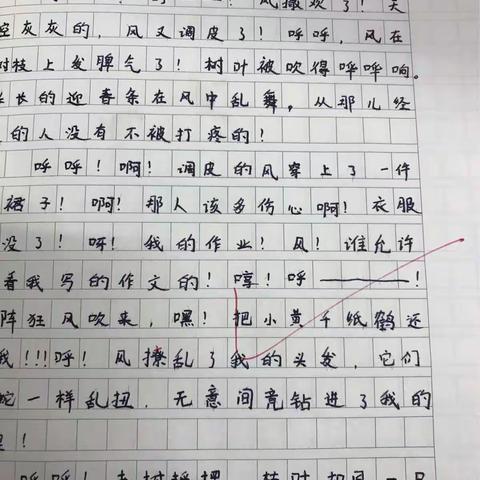 风撒欢了！天
空灰灰的，风又调皮了！呼呼，风在
树枝上发脾气了！树叶被吹得哗哗响。
长长的迎春条在风中乱舞，从那儿经
的人没有不被打疼的！
呼呼！啊！调皮的风穿上了一件
裙子！啊！那人该多伤心啊！衣服
没了！呀！我的作业！风！谁允许
看我写的作文的！哼！呼——！
阵狂风吹来，嘿！把小黄千纸鹤还
我！！！呼！风撩乱了我的头发，它们
蛇一样乱扭，无意间竟钻进了我的
里！
呼呼！